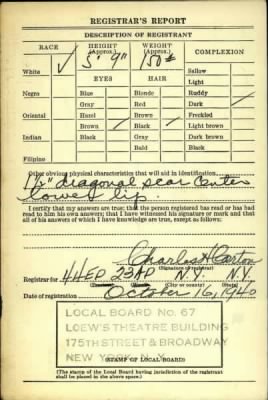 REGISTRAR'S REPORT
DESCRIPTION OF REGISTRANT
RACE HEIGHT (Approx.) WEIGHT (Approx.) COMPLEXION
White ✓ 5' 9" 150# Sallow
EYES HAIR Light
Negro Blue Blonde Ruddy
Gray Red Dark ✓
Oriental Hazel Brown Freckled
Brown ✓ Black ✓ Light brown
Indian Black Gray Dark brown
Bald Black
Filipino
Other obvious physical characteristics that will aid in identification
1½" diagonal scar center
lower lip.
I certify that my answers are true; that the person registered has read or has had
read to him his own answers; that I have witnessed his signature or mark and that
all of his answers of which I have knowledge are true, except as follows:
Charles H
(Signature of registrar)
Registrar for 44EP 23AP N.Y. N.Y.
(City or county) (State)
Date of registration October 16, 1940
LOCAL BOARD No. 67
LOEW'S THEATRE BUILDING
175TH STREET & BROADWAY
NEW YORK, N. Y.
(STAMP OF LOCAL BOARD)
(The stamp of the Local Board having jurisdiction of the registrant
shall be placed in the above space.)